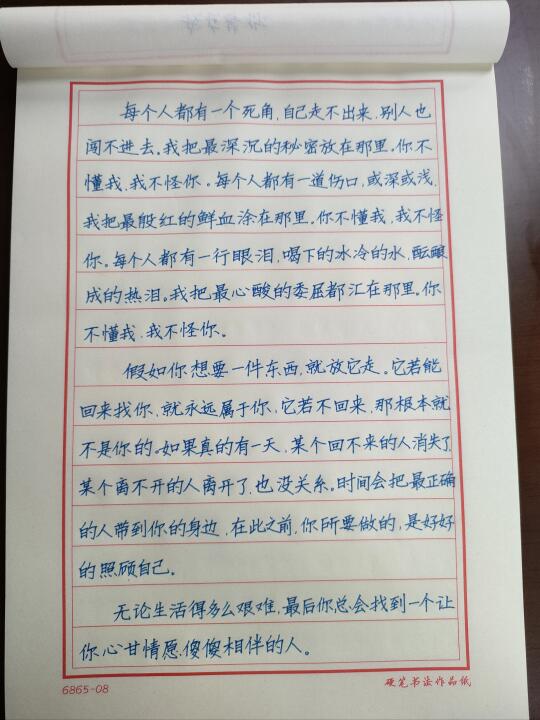 每个人都有一个死角，自己走不出来，别人也
闯不进去。我把最深沉的秘密放在那里。你不
懂我，我不怪你。每个人都有一道伤口，或深或浅，
我把最殷红的鲜血涂在那里。你不懂我，我不怪
你。每个人都有一行眼泪，喝下的冰冷的水，酝酿
成的热泪。我把最心酸的委屈都汇在那里。你
不懂我，我不怪你。
假如你想要一件东西，就放它走。它若能
回来找你，就永远属于你，它若不回来，那根本就
不是你的。如果真的有一天，某个回不来的人消失了，
某个离不开的人离开了，也没关系。时间会把最正确
的人带到你的身边，在此之前，你所要做的，是好好
的照顾自己。
无论生活得多么艰难，最后你总会找到一个让
你心甘情愿、傻傻相伴的人。
6865-08 硬笔书法作品纸